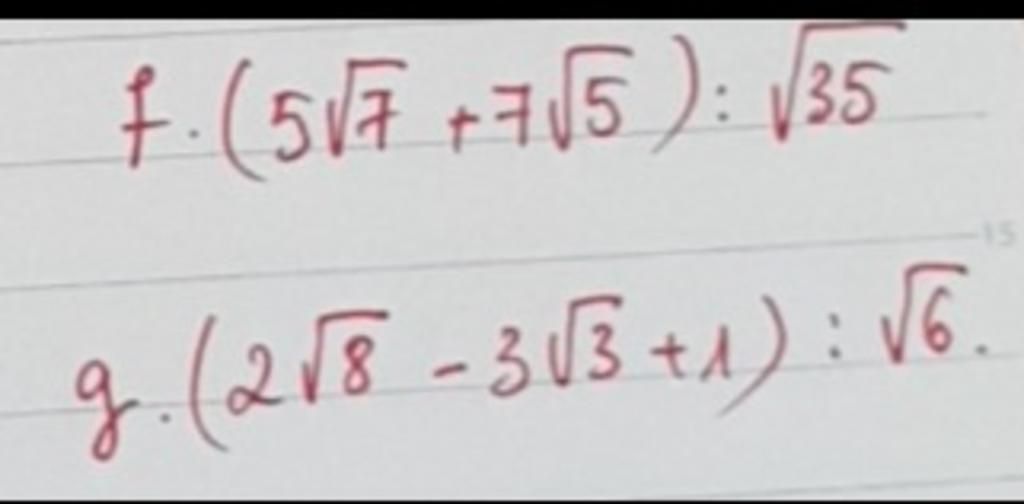 f. (5√7 + 7√5) : √35
15
g. (2√8 - 3√3 + 1) : √6.